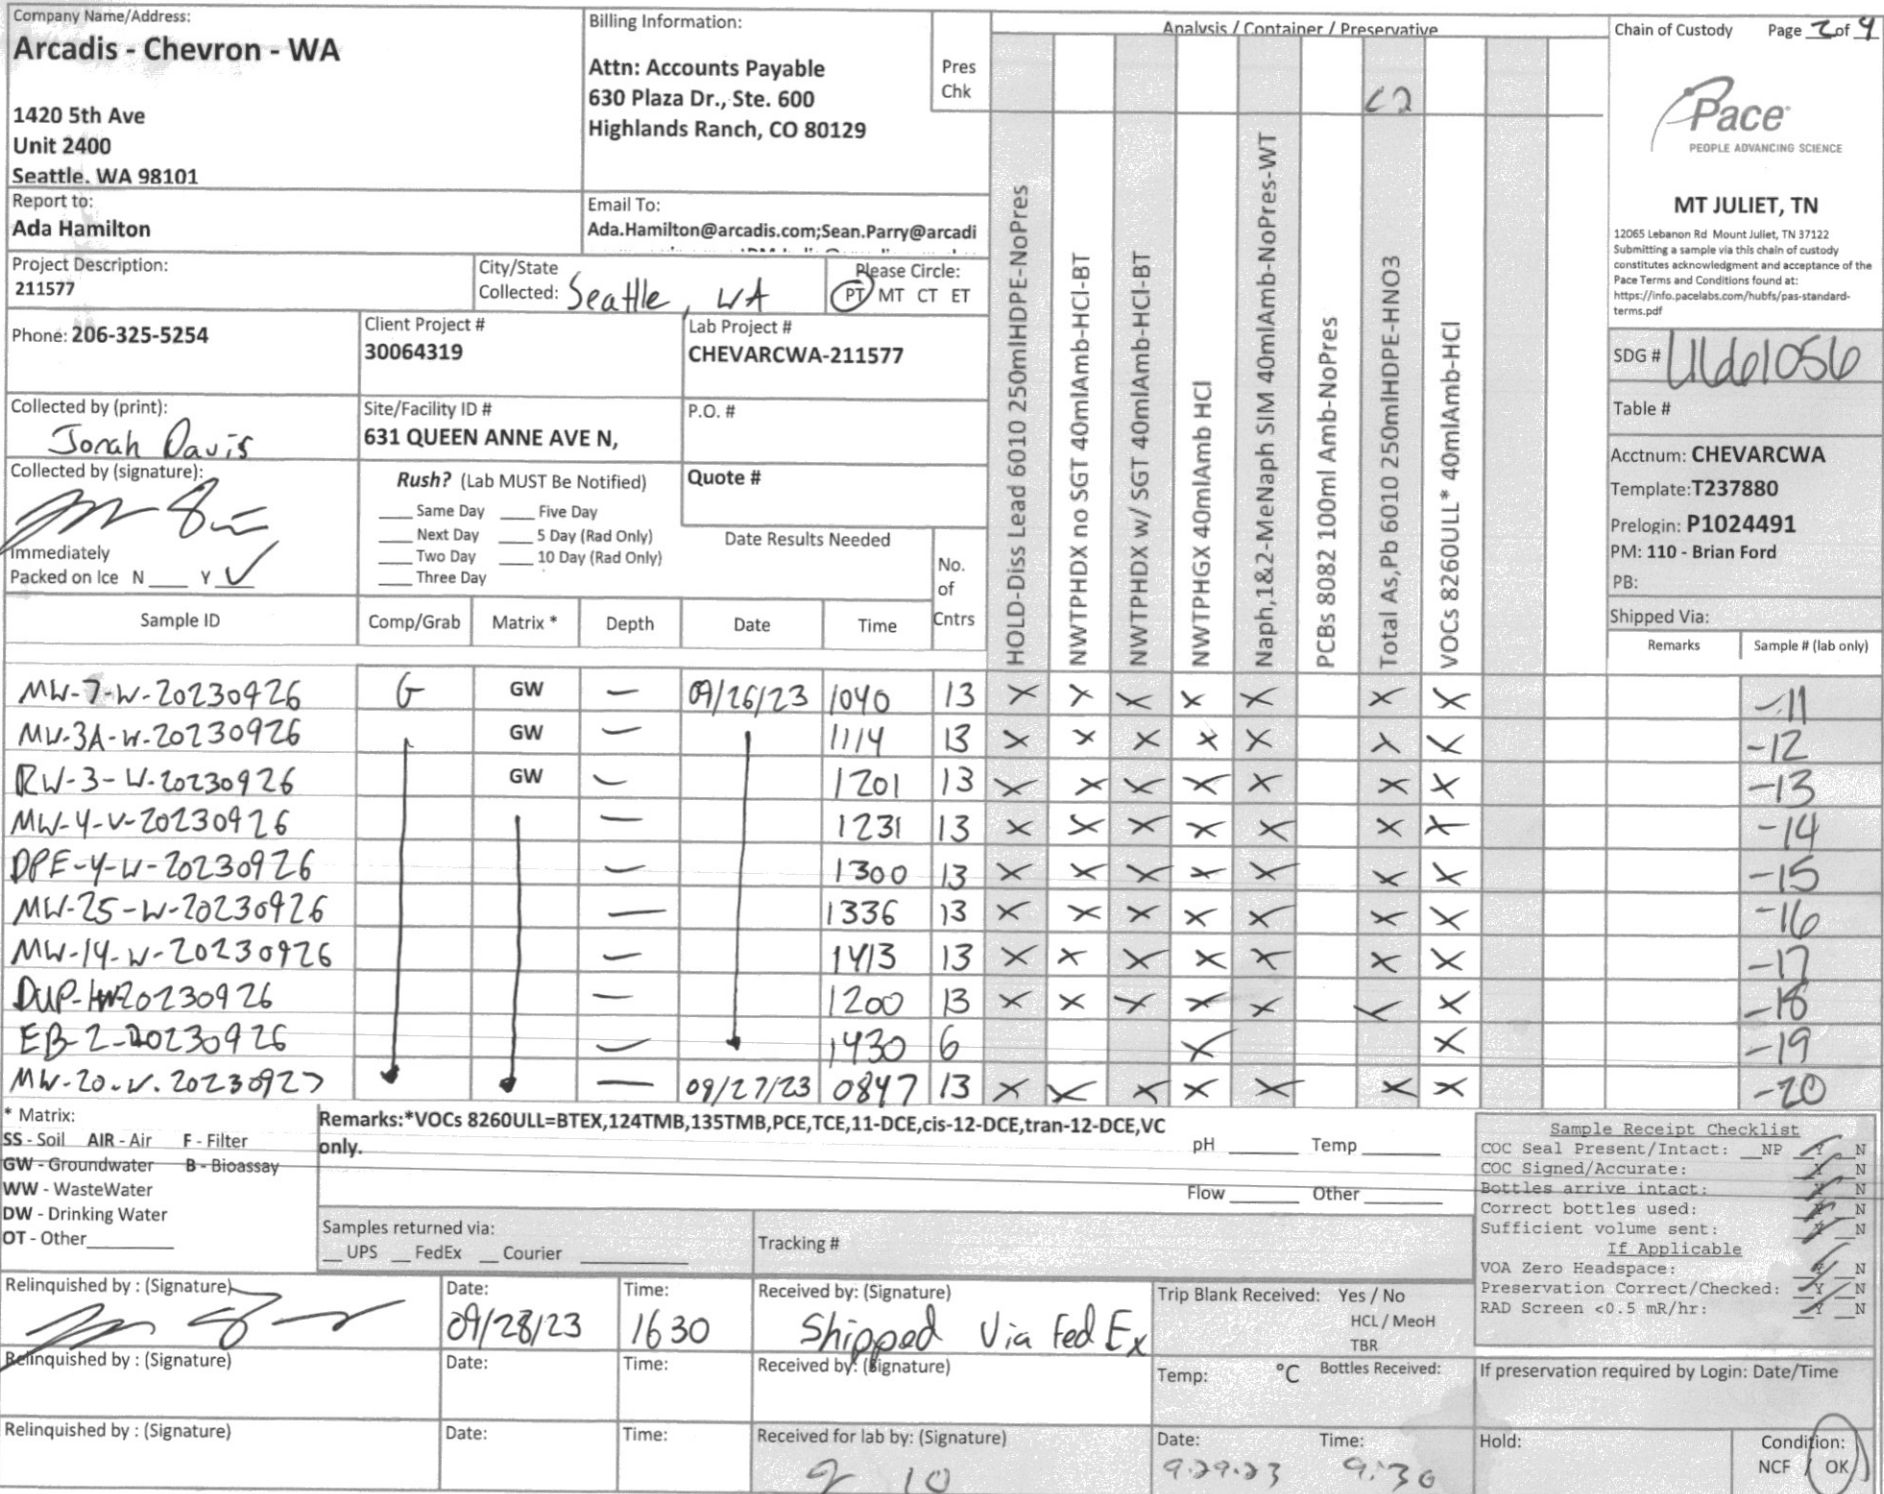 Company Name/Address:
Arcadis - Chevron - WA
1420 5th Ave
Unit 2400
Seattle. WA 98101
Billing Information:
Attn: Accounts Payable
630 Plaza Dr., Ste. 600
Highlands Ranch, CO 80129
Pres
Chk
Analysis / Container / Preservative
<2
Chain of Custody Page 2 of 4
Pace
PEOPLE ADVANCING SCIENCE
MT JULIET, TN
12065 Lebanon Rd Mount Juliet, TN 37122
Submitting a sample via this chain of custody
constitutes acknowledgment and acceptance of the
Pace Terms and Conditions found at:
https://info.pacelabs.com/hubfs/pas-standard-
terms.pdf
Report to:
Ada Hamilton
Email To:
Ada.Hamilton@arcadis.com;Sean.Parry@arcadi
Project Description:
211577
City/State
Collected: Seattle, WA
Please Circle:
PT MT CT ET
Phone: 206-325-5254
Client Project #
30064319
Lab Project #
CHEVARCWA-211577
Collected by (print):
Jonah Davis
Site/Facility ID #
631 QUEEN ANNE AVE N,
P.O. #
Collected by (signature):
Immediately
Packed on Ice N ___ Y ✓
Rush? (Lab MUST Be Notified)
___ Same Day ___ Five Day
___ Next Day ___ 5 Day (Rad Only)
___ Two Day ___ 10 Day (Rad Only)
___ Three Day
Quote #
Date Results Needed
No.
of
Cntrs
HOLD-Diss Lead 6010 250mlHDPE-NoPres
NWTPHDX no SGT 40mlAmb-HCl-BT
NWTPHDX w/ SGT 40mlAmb-HCl-BT
NWTPHGX 40mlAmb HCl
Naph,1&2-MeNaph SIM 40mlAmb-NoPres-WT
PCBs 8082 100ml Amb-NoPres
Total As,Pb 6010 250mlHDPE-HNO3
VOCs 8260ULL* 40mlAmb-HCl
SDG # L1661056
Table #
Acctnum: CHEVARCWA
Template:T237880
Prelogin: P1024491
PM: 110 - Brian Ford
PB:
Shipped Via:
Sample ID Comp/Grab Matrix * Depth Date Time Remarks Sample # (lab only)
MW-7-W-20230926 G GW — 09/26/23 1040 13 X X X X X X X -11
MW-3A-W-20230926 GW — 1114 13 X X X X X X X -12
RW-3-W-20230926 GW — 1201 13 X X X X X X X -13
MW-4-W-20230926 — 1231 13 X X X X X X X -14
DPE-4-W-20230926 — 1300 13 X X X X X X X -15
MW-25-W-20230926 — 1336 13 X X X X X X X -16
MW-14-W-20230926 — 1413 13 X X X X X X X -17
DUP-1-W-20230926 — 1200 13 X X X X X X X -18
EB-2-20230926 — 1430 6 X X -19
MW-20-W-20230927 — 09/27/23 0847 13 X X X X X X X -20
* Matrix:
SS - Soil AIR - Air F - Filter
GW - Groundwater B - Bioassay
WW - WasteWater
DW - Drinking Water
OT - Other
Remarks:*VOCs 8260ULL=BTEX,124TMB,135TMB,PCE,TCE,11-DCE,cis-12-DCE,tran-12-DCE,VC
only.
pH ___ Temp ___
Flow ___ Other ___
Samples returned via:
__ UPS __ FedEx __ Courier
Tracking #
Sample Receipt Checklist
COC Seal Present/Intact: __NP Y N
COC Signed/Accurate: Y N
Bottles arrive intact: Y N
Correct bottles used: Y N
Sufficient volume sent: Y N
If Applicable
VOA Zero Headspace: Y N
Preservation Correct/Checked: Y N
RAD Screen <0.5 mR/hr: Y N
Relinquished by : (Signature)
Date:
09/28/23
Time:
1630
Received by: (Signature)
Shipped Via FedEx
Trip Blank Received: Yes / No
HCL / MeoH
TBR
Relinquished by : (Signature)
Date:
Time:
Received by: (Signature)
Temp: °C Bottles Received:
If preservation required by Login: Date/Time
Relinquished by : (Signature)
Date:
Time:
Received for lab by: (Signature)
Date:
9.29.23
Time:
9:30
Hold:
Condition:
NCF / OK